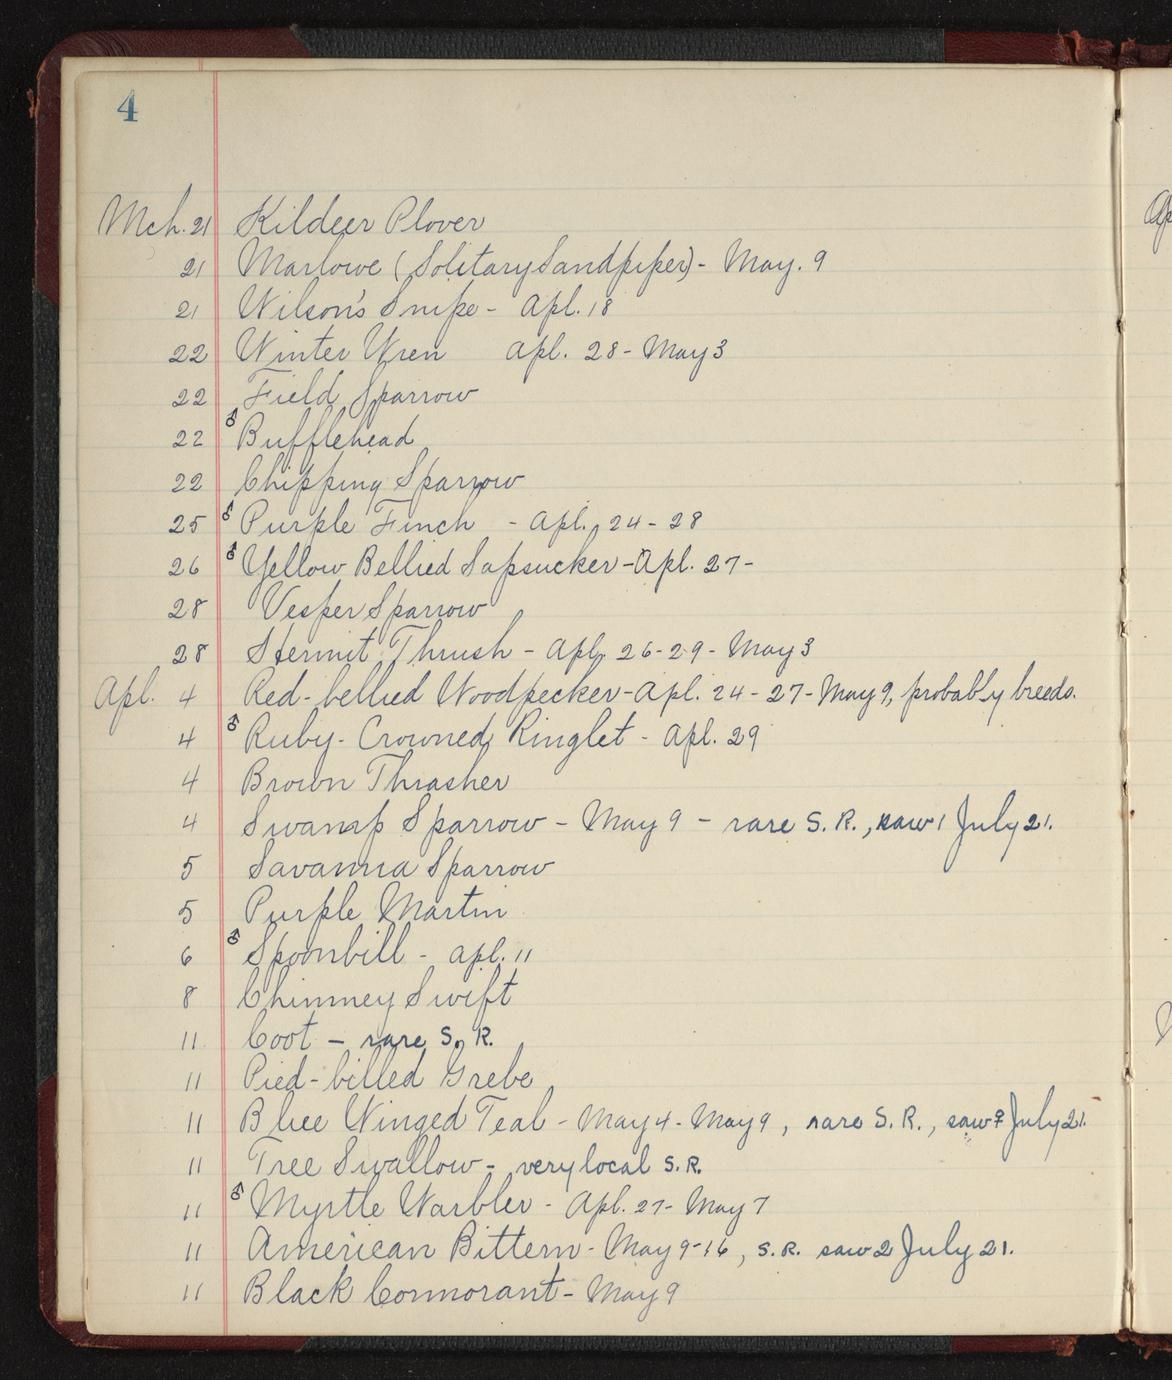 4
Mch. 21 Kildeer Plover
21 Marlowe (Solitary Sandpiper) - May. 9
21 Wilson's Snipe - Apl. 18
22 Winter Wren Apl. 28 - May 3
22 Field Sparrow
22 ♂ Bufflehead
22 Chipping Sparrow
25 ♂ Purple Finch - Apl. 24 - 28
26 ♂ Yellow Bellied Sapsucker - Apl. 27 -
28 Vesper Sparrow
28 Hermit Thrush - Apl. 26 - 29 - May 3
Apl. 4 Red-bellied Woodpecker - Apl. 24 - 27 - May 9, probably breeds.
4 ♂ Ruby-Crowned Kinglet - Apl. 29
4 Brown Thrasher
4 Swamp Sparrow - May 9 - rare S. R., saw 1 July 21.
5 Savanna Sparrow
5 Purple Martin
6 ♂ Spoonbill - Apl. 11
8 Chimney Swift
11 Coot - rare S. R.
11 Pied-billed Grebe
11 Blue Winged Teal - May 4 - May 9, rare S. R., saw July 21.
11 Tree Swallow - very local S. R.
11 ♂ Myrtle Warbler - Apl. 27 - May 7
11 American Bittern - May 9-16, S. R. saw 2 July 21.
11 Black Cormorant - May 9